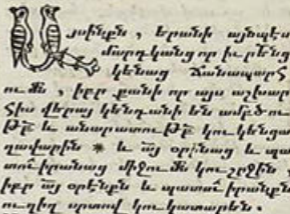 Այսինքն, երանի այնպէս
մարդկանց որ իւրենց
կենաց Ճանապարհ
ու մէ, իբր քանի որ այս աշխար
հիս վերայ կենդանի են ամբծու
թէ և անարատութէ կու կենցա
ղավարին * և ա՟յ օրինաց և պա
տուի՟րանաց միջումէ կու շրջին,
իբր ա՟յ օրէնքն և պատուի՟րանքն
ուղիղ սրտով կու կատարեն.